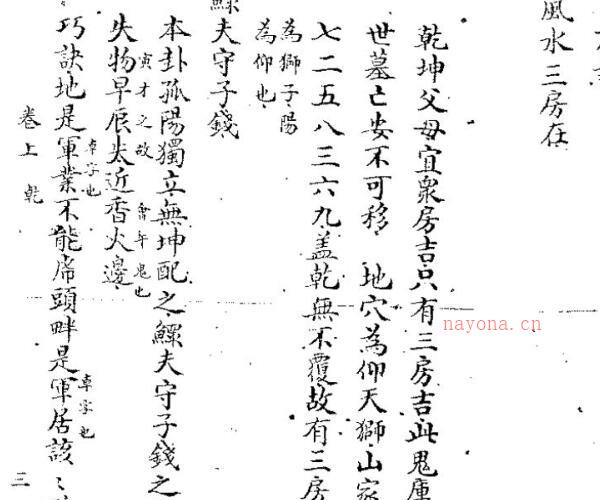 風水三房在
乾坤父母宜衆房吉只有三房吉此鬼庫
世墓亡安不可移 地穴為仰天獅山家
七二五八三六九盖乾無不覆故有三房
為獅子陽
為仰也
鰥夫守子錢
本卦孤陽獨立無坤配之鰥夫守子錢之
寅才之故 會午鬼也
失物早辰太近香火邊
卓字也
巧訣地是軍業不能席頭畔是軍居該
卓字也
卷上 乾
三
nayona.cn